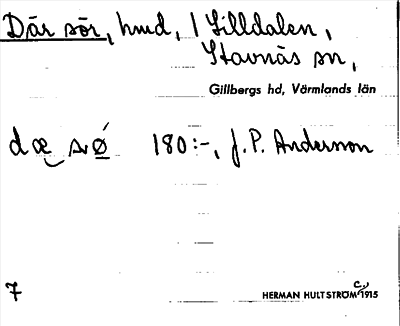 Där sör, hmd, 1 Lilldalen,
Stavnäs sn,
Gillbergs hd, Värmlands län
dæ sǿ̲ 180:-, J.P. Anderson
7
HERMAN HULTSTRÖM c. 1915